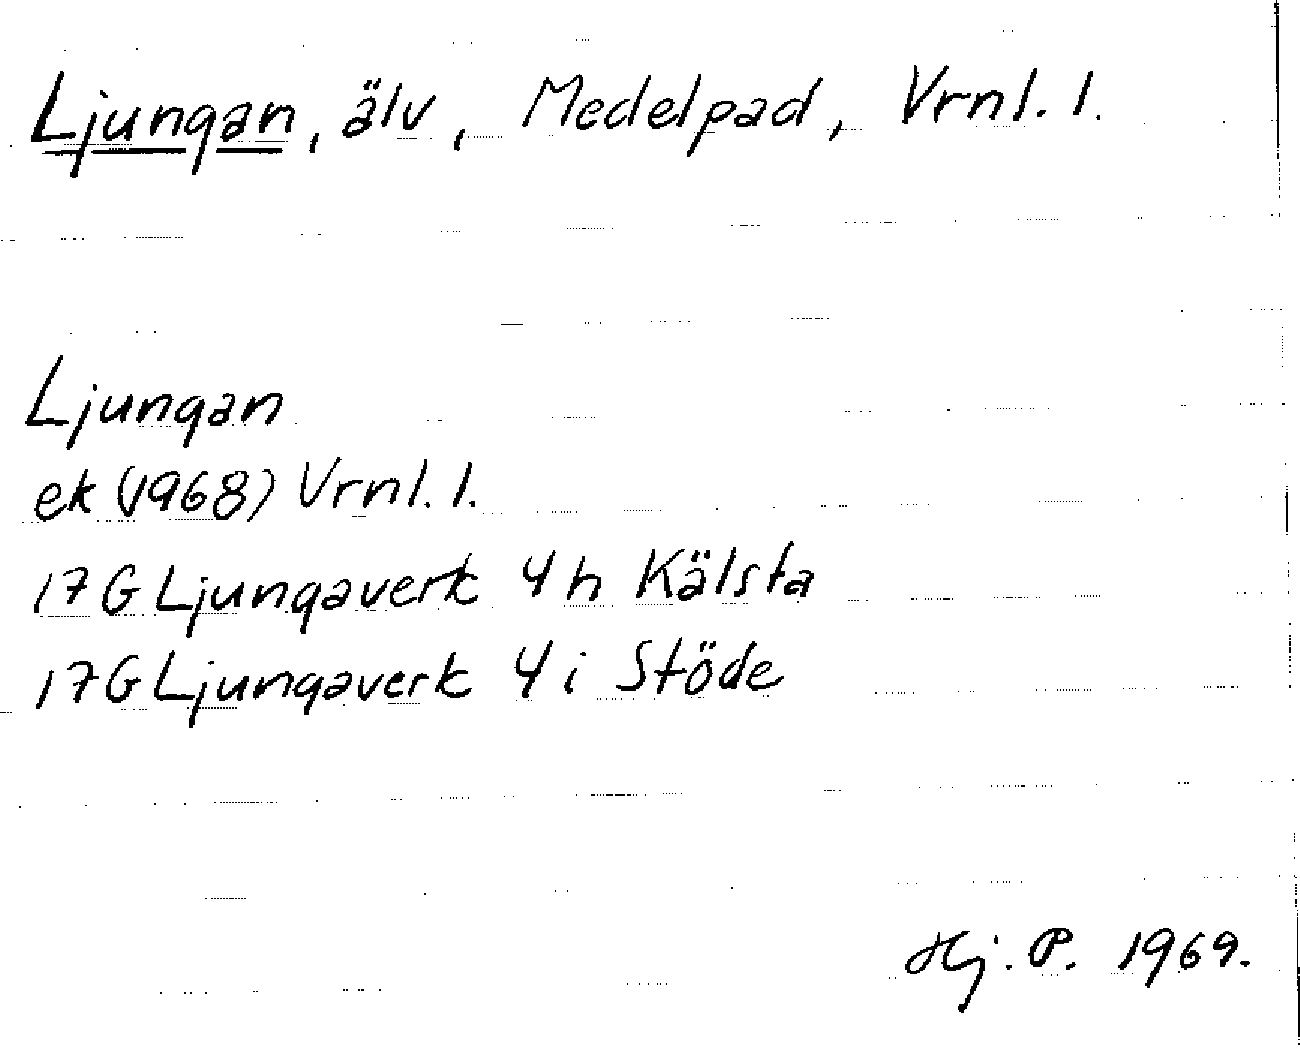 Ljungan, älv, Medelpad, Vrnl. l.
Ljungan
ek (1968) Vrnl. l.
17G Ljungaverk 4h Kälsta
17G Ljungaverk 4i Stöde
Hj. P. 1969.